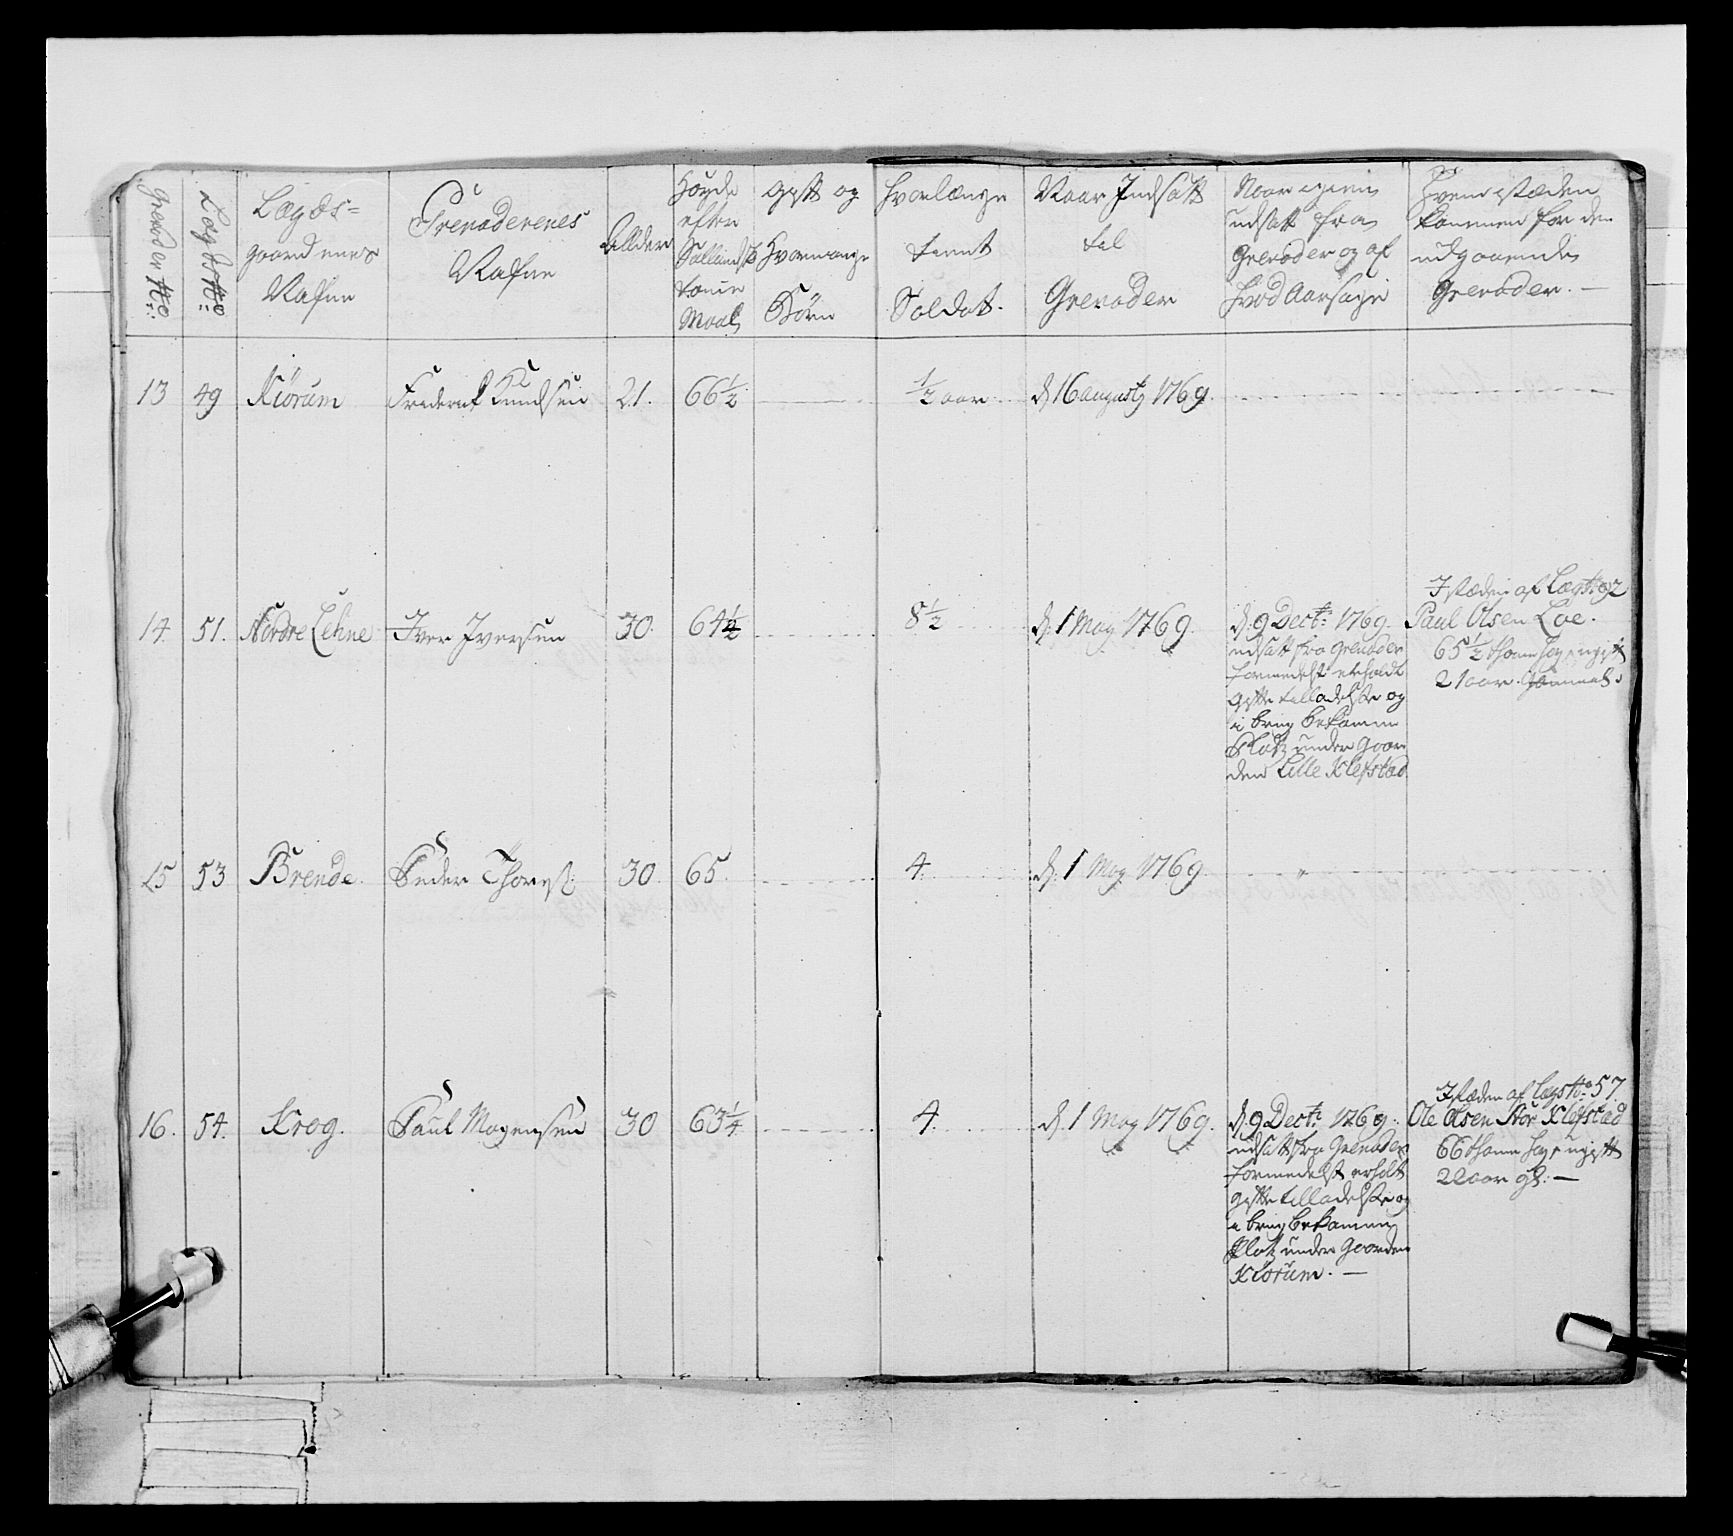 Grenader No
Lægds No
Lægds=
gaardenes
Nafne
Grenaderenes
Nafne
Allder
Høyde
efter
Sællandsk
tomme
Maal
Gift og
Hvormange
Børn
Hvorlænge
tient
Soldat.
Naar Indsatt
til
Grenader
Naar igien
udsatt fra
Grenader og af
Hvad Aarsage
Hvem i stæden
kommen for den
udgaaende
Grenader. —
13 49 Kiørum Friderik Knudsen 21. 66½ ½ aar d 16 augusty 1769.
14. 51. Nordre Lehne Iver Iversen 30. 64½ 8½ d. 1 May 1769.
d. 9 Dectr: 1769.
udsatt fra Grenader
formedelst erholdt
Gifte tilladelse og
i brug bekomme
Platz under Gaar
den Lille Klefstad
I stæden af Lægs No 92
Paul Olsen Loe.
65½ tomme høy, ugift
21 aar gammel.
15 53 Brende. Peder Thores: 30. 65. 4. d. 1 May 1769.
16. 54. Krog. Paul Mogensen 30 63¼ 4. d. 1 May 1769.
d. 9 Dectr: 1769.
udsatt fra Grenader
formedelst erholt
Gifte tilladelse og
i brug bekomme
Platz under Gaarden
Kiørum. —
I stæden af Lægs No 57.
Ole Olsen Stor Klefstad
66 tomme høy, ugift
22 aar gl: —